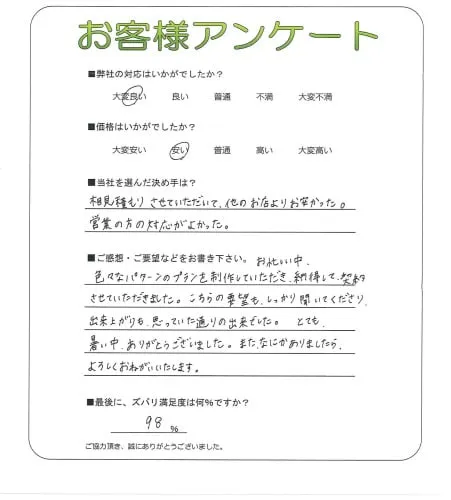 お客様アンケート
■弊社の対応はいかがでしたか？
大変良い 良い 普通 不満 大変不満
■価格はいかがでしたか？
大変安い 安い 普通 高い 大変高い
■当社を選んだ決め手は？
相見積もりさせていただいて、他のお店よりお安かった。
営業の方の対応がよかった。
■ご感想・ご要望などをお書き下さい。 お忙しい中、
色々なパターンのプランを制作していただき、納得して、契約
させていただきました。こちらの要望も、しっかり聞いてくださり、
出来上がりも、思っていた通りの出来でした。 とても、
暑い中、ありがとうございました。また、なにかありましたら、
よろしくおねがいいたします。
■最後に、ズバリ満足度は何%ですか？
98 %
ご協力頂き、誠にありがとうございました。